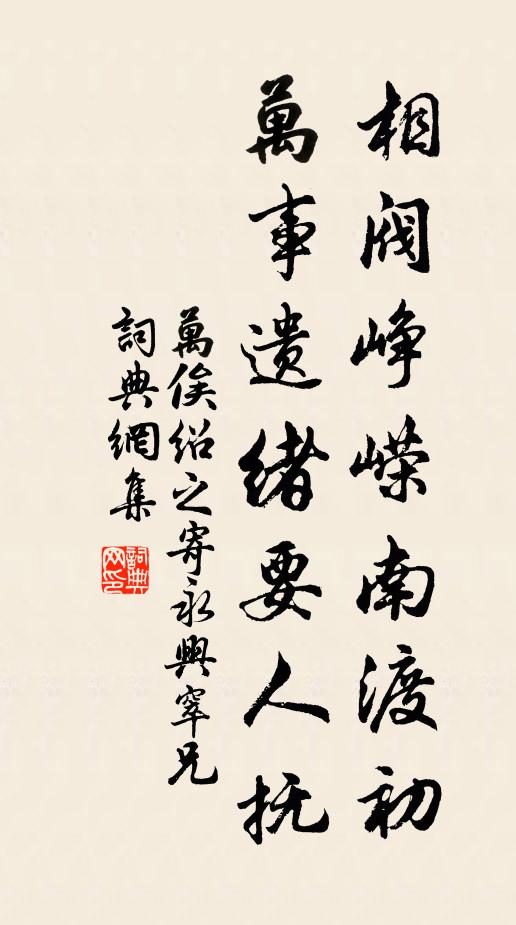 相閥峥嶸南渡初
萬事遗緒要人抚
萬俟绍之寄永興宰兄
詞典網集
詞典网印